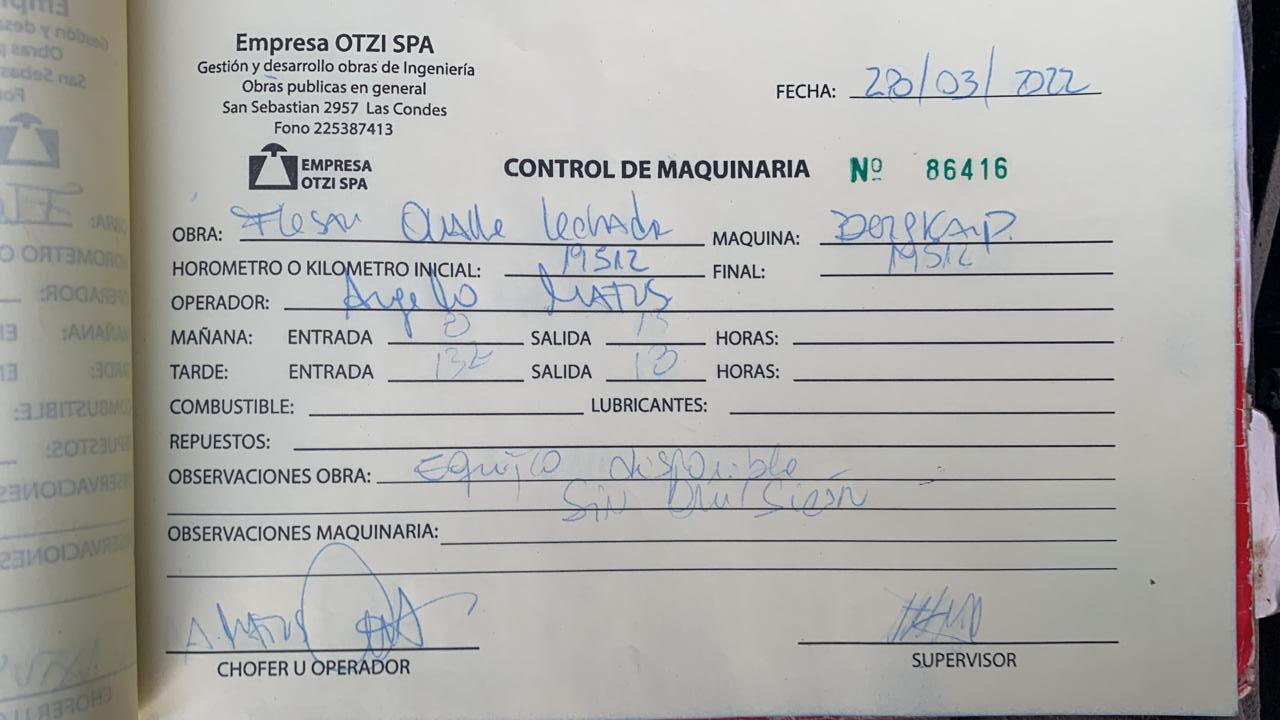 Empresa OTZI SPA
Gestión y desarrollo obras de Ingeniería
Obras publicas en general
San Sebastian 2957 Las Condes
Fono 225387413
FECHA: /03/2022
EMPRESA
OTZI SPA
CONTROL DE MAQUINARIA Nº 86416
OBRA: MAQUINA:
HOROMETRO O KILOMETRO INICIAL: 19512 FINAL: 19512
OPERADOR: Angelo MATUS
MAÑANA: ENTRADA 8 SALIDA 13 HORAS:
TARDE: ENTRADA SALIDA HORAS:
COMBUSTIBLE: LUBRICANTES:
REPUESTOS:
OBSERVACIONES OBRA: Equipo disponible
Sin
OBSERVACIONES MAQUINARIA:
A. MATUS
CHOFER U OPERADOR
SUPERVISOR